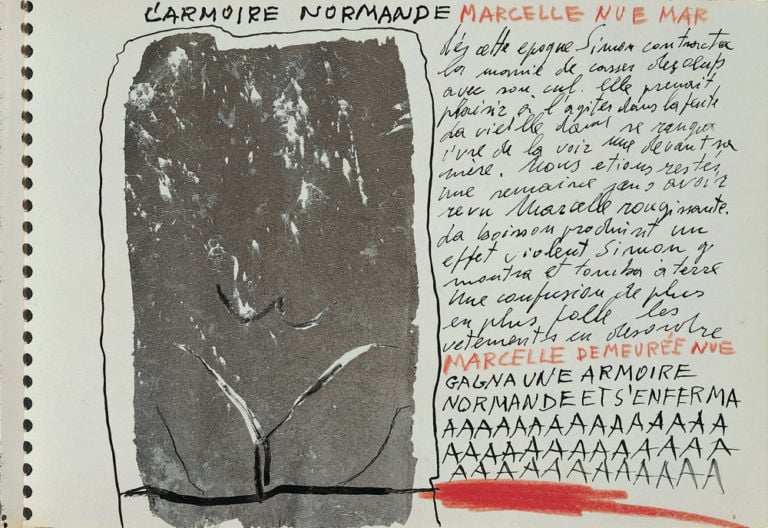 L'ARMOIRE NORMANDE MARCELLE NUE MAR
Dés cette epoque Simon contracta
la manie de casser des œufs
avec son cul. Elle prenait
plaisir à l'agiter dans la fente
La vieille dame se rangea
ivre de la voir nue devant sa
mère. Nous etions restés
une semaine sans avoir
revu Marcelle rougissante.
La boisson produisit un
effet violent Simon
montra et tomba à terre
Une confusion de plus
en plus folle les
vetements en desordre
MARCELLE DEMEURÉE NUE
GAGNA UNE ARMOIRE
NORMANDE ET S'ENFERMA
AAAAAAAAAAAAAAA
AAAAAAAAAAAAAA
AAAAAAAAAAAAAA